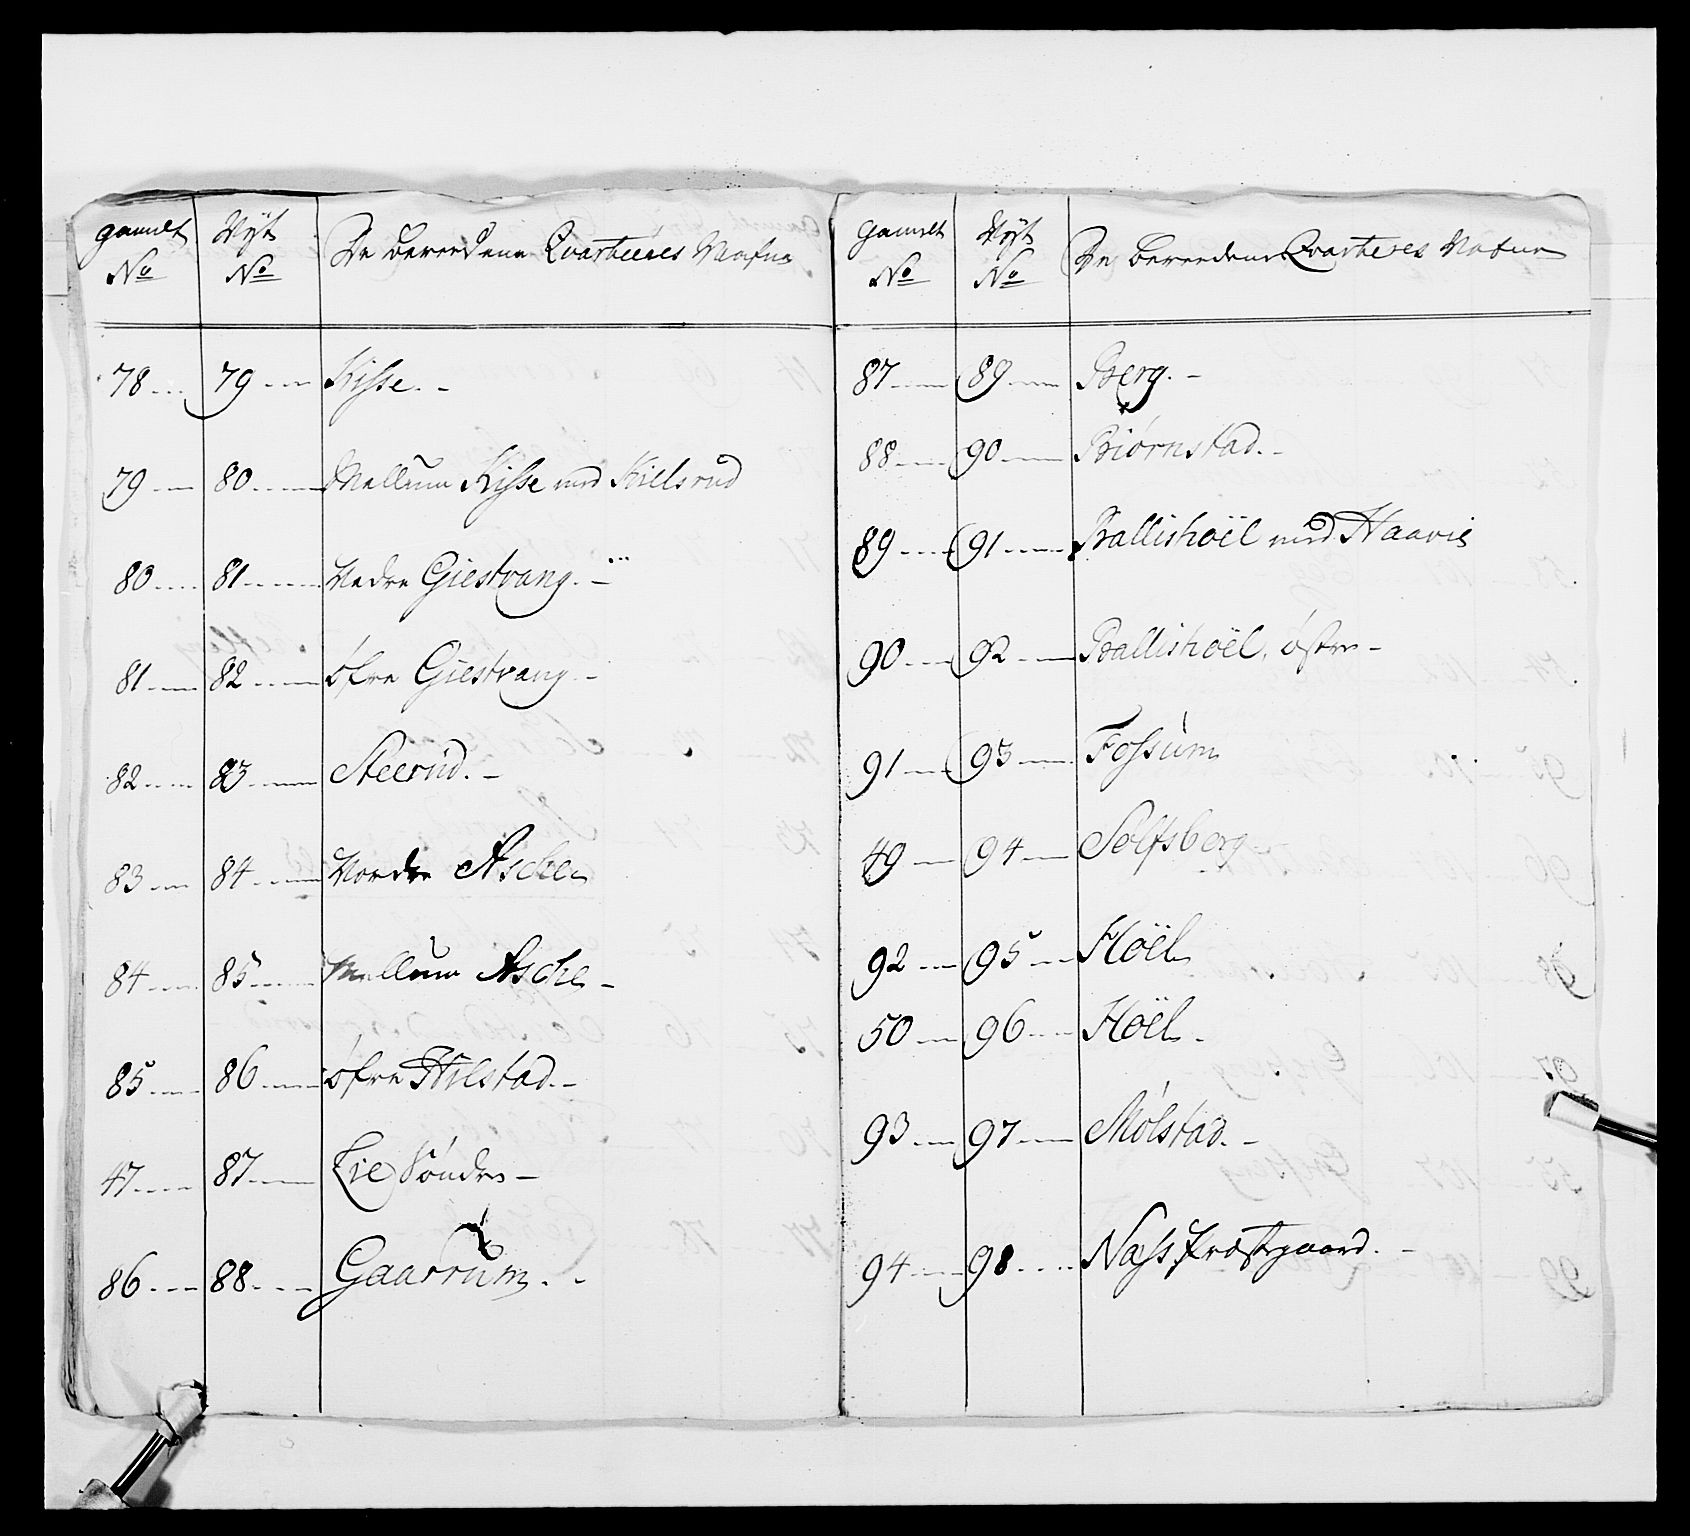 gamelt Nyt De beredene Qvarteeres Nafne
No No
78 79 Kisse.
79 80 Mellum Kisse med Killsrud
80 81 Nedre Giestvang.
81 82 öfre Giestvang.
82 83 Steerud.
83 84 Nordre Aschen
84 85 Mellum Asche
85 86 öfre Hilstad.
47 87 Lie Söndre
86 88 Gaarrum.
gamelt Nyt De beredene Qvarteres Nafne
No No
87 89 Berg.
88 90 Biörnstad.
89 91 Ballishöel med Haavie
90 92 Ballishöel, östre
91 93 Fossum
49 94 Solfsberg
92 95 Höel
50 96 Höel
93 97 Mölstad.
94 98 Næss Præstgaard.